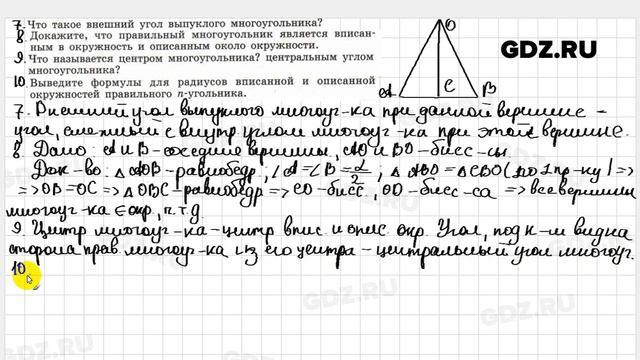 7. Что такое внешний угол выпуклого многоугольника?
8 Докажите, что правильный многоугольник является вписан-
ным в окружность и описанным около окружности.
9. Что называется центром многоугольника? центральным углом
многоугольника?
10. Выведите формулы для радиусов вписанной и описанной
окружностей правильного n-угольника.
O
A C B
GDZ.RU
7. Внешний угол выпуклого многоуг-ка при данной вершине -
угол, смежный с внутр углом многоуг-ка при этой вершине.
8. Дано: A и B - соседние вершины, AO и BO - бисс-сы.
Док-во: △AOB - равнобедр, ∠A = ∠B = α/2; △ABO = △CBO (по 1 пр-ку) =>
=> OB = OC => △OBC - равнобедр => CO - бисс, OD - бисс-са => все вершины
многоуг-ка ∈ окр, ч.т.д.
9. Центр многоуг-ка - центр впис. и опис. окр. Угол, под к-м видна
сторона прав. многоуг-ка из его центра - центральный угол многоуг.
10
GDZ.RU